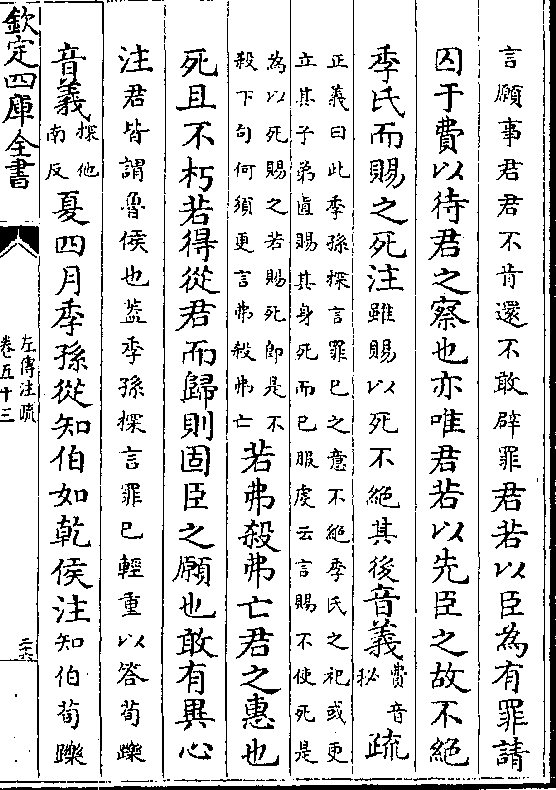 言願事君君不肯還不敢辟罪君若以臣為有罪請
囚于費以待君之察也亦唯君若以先臣之故不絕
季氏而賜之死注雖賜以死不絕其後音義費音秘疏
正義曰此季孫探言罪已之意不絕季氏之祀或更
立其子弟直賜其身死而已服虔云言賜不使死是
為以死賜之若賜死即是不
殺下句何須更言弗殺弗亡
若弗殺弗亡君之惠也
死且不朽若得從君而歸則固臣之願也敢有異心
注君皆謂魯侯也葢季孫探言罪已輕重以答荀躒
音義探他南反夏四月季孫從知伯如乾侯注知伯荀躒
欽定四庫全書
左傳注疏
卷五十三
二六